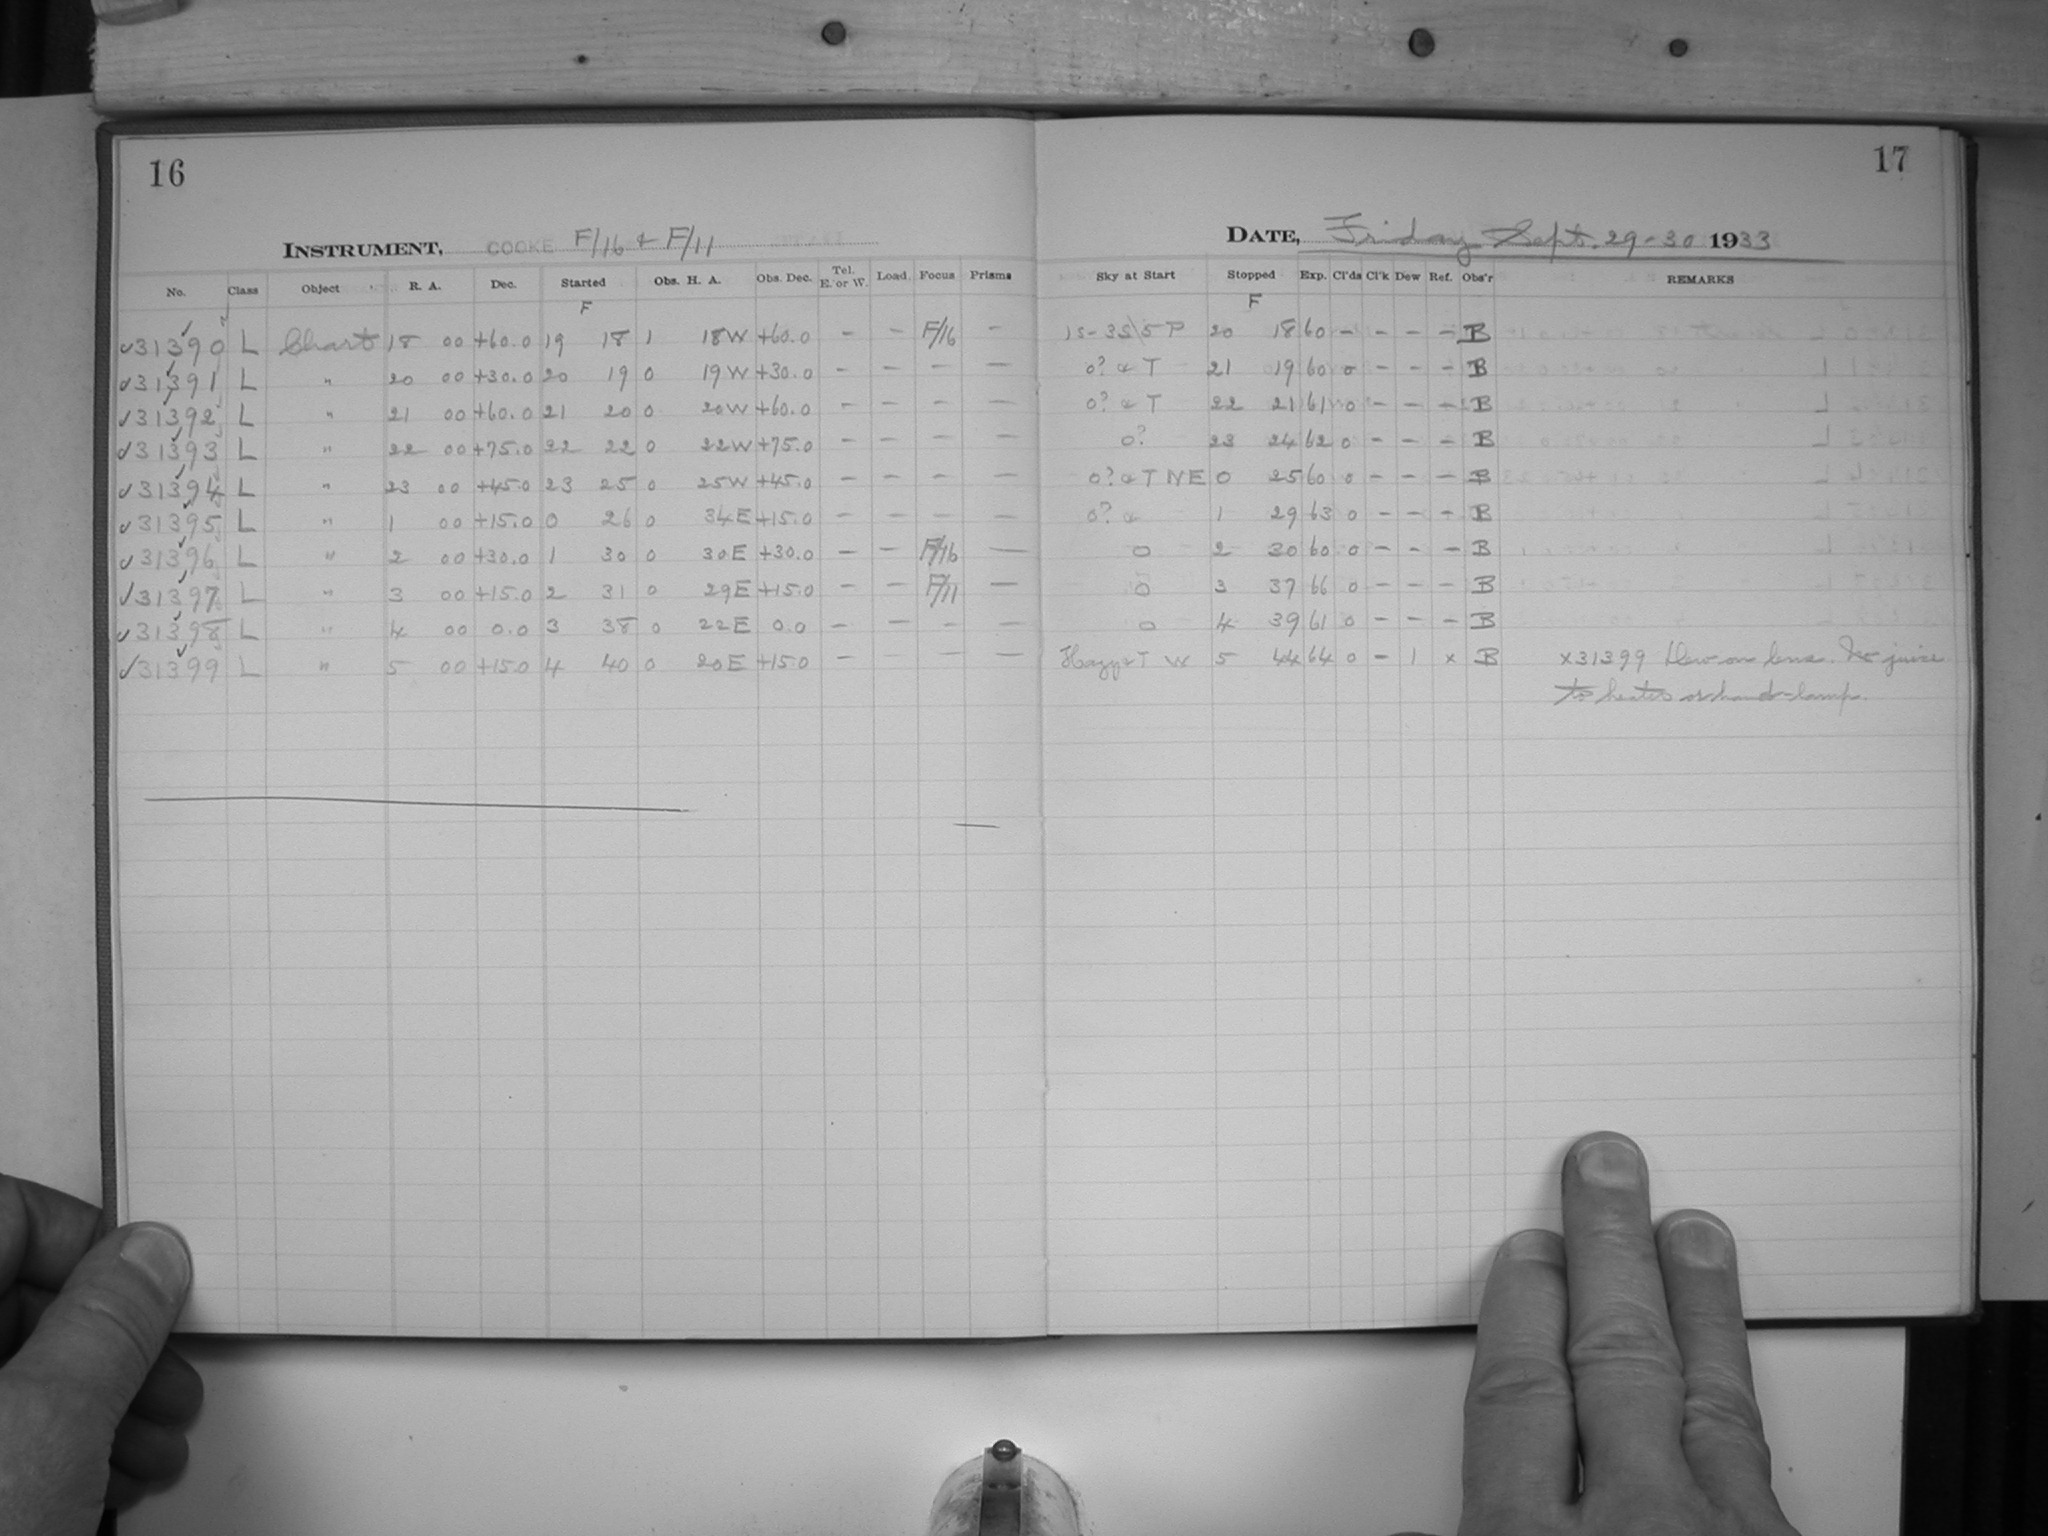 16
17
INSTRUMENT, COOKE F/16 & F/11
DATE, Friday Sept. 29-30 1933
No. Class Object R. A. Dec. Started Obs. H. A. Obs. Dec. Tel. E. or W. Load Focus Prisms Sky at Start Stopped Exp. Cl'ds Cl'k Dew Ref. Obs'r REMARKS
F F
✓31390 L Chart 18 00 +60.0 19 18 1 18W +60.0 - - F/16 - 1S-3S\5 P 20 18 60 - - - - B
✓31391 L " 20 00 +30.0 20 19 0 19W +30.0 - - - - 0? & T 21 19 60 0 - - - B
✓31392 L " 21 00 +60.0 21 20 0 20W +60.0 - - - - 0? & T 22 21 61 0 - - - B
✓31393 L " 22 00 +75.0 22 22 0 22W +75.0 - - - - 0? 23 24 62 0 - - - B
✓31394 L " 23 00 +45.0 23 25 0 25W +45.0 - - - - 0? & T NE 0 25 60 0 - - - B
✓31395 L " 1 00 +15.0 0 26 0 34E +15.0 - - - - 0? & 1 29 63 0 - - - B
✓31396 L " 2 00 +30.0 1 30 0 30E +30.0 - - F/16 - 0 2 30 60 0 - - - B
✓31397 L " 3 00 +15.0 2 31 0 29E +15.0 - - F/11 - 0 3 37 66 0 - - - B
✓31398 L " 4 00 0.0 3 38 0 22E 0.0 - - - - 0 4 39 61 0 - - - B
✓31399 L " 5 00 +15.0 4 40 0 20E +15.0 - - - - Hazy & T W 5 44 64 0 - 1 x B x31399 Dew on lens. No juice
to heater or hand-lamp.